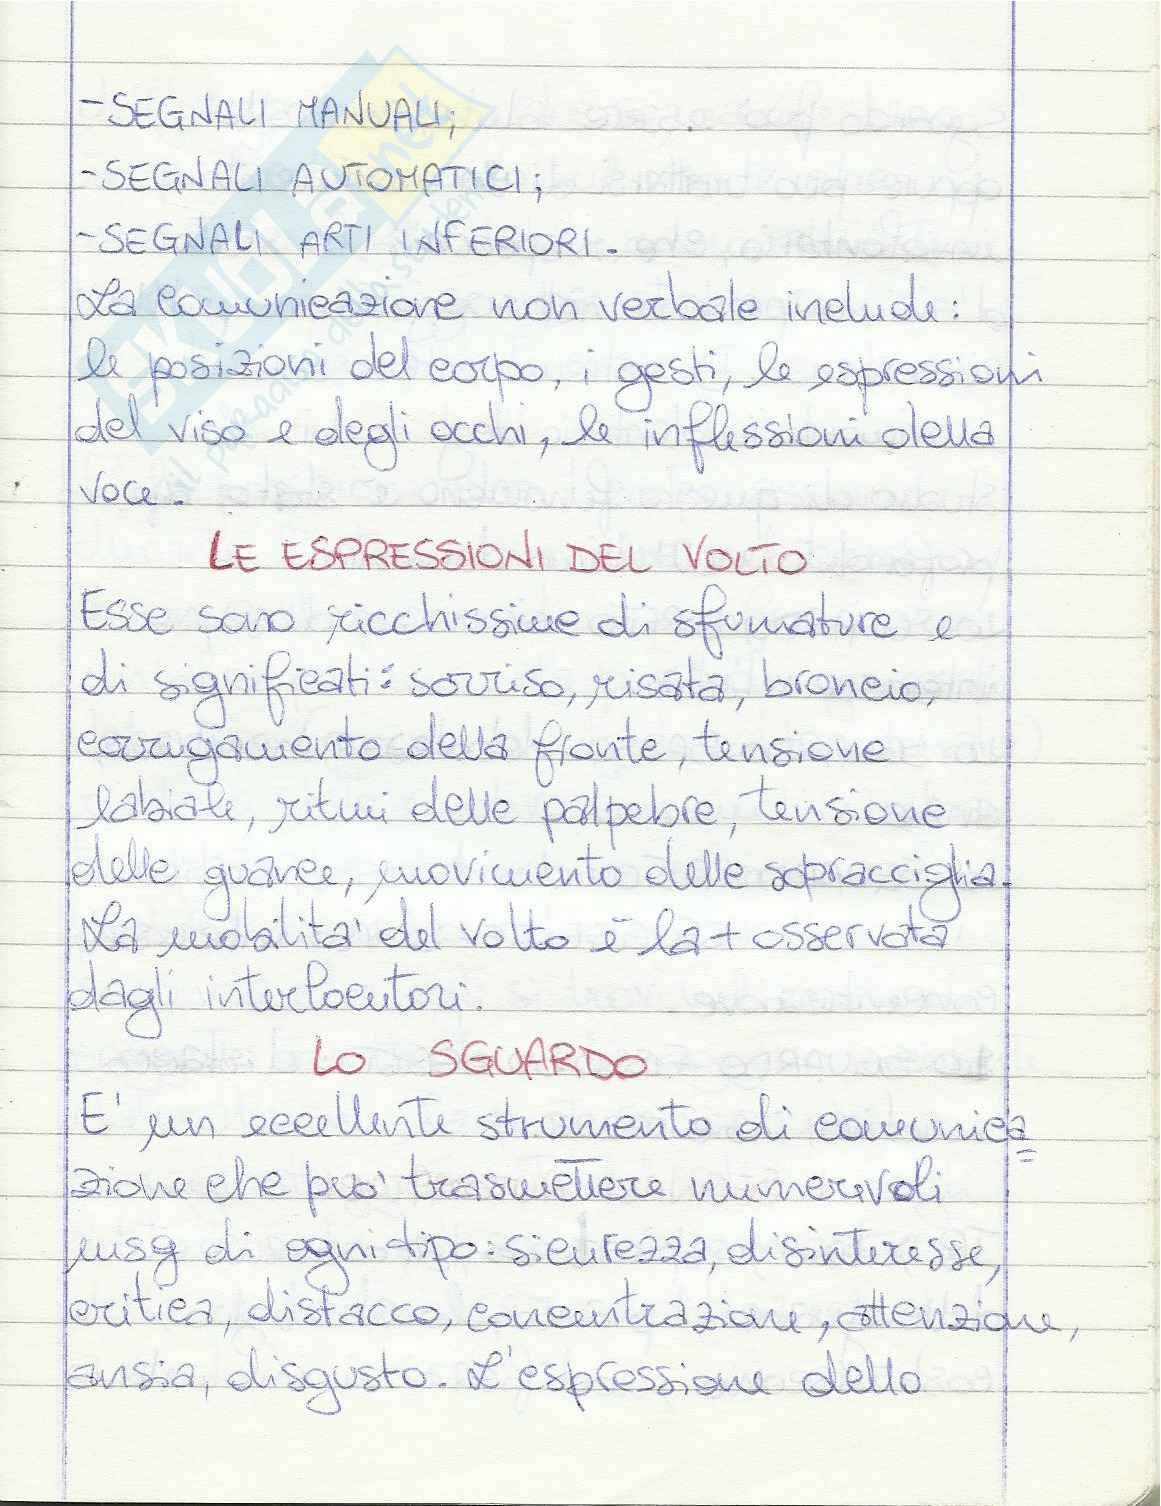 -SEGNALI MANUALI;
-SEGNALI AUTOMATICI;
-SEGNALI ARTI INFERIORI.
La comunicazione non verbale include:
le posizioni del corpo, i gesti, le espressioni
del viso e degli occhi, le inflessioni della
voce.
LE ESPRESSIONI DEL VOLTO
Esse sono ricchissime di sfumature e
di significati: sorriso, risata, broncio,
corrugamento della fronte, tensione
labiale, ritmi delle palpebre, tensione
delle guance, movimento delle sopracciglia.
La mobilita' del volto è la + osservata
dagli interlocutori.
LO SGUARDO
E' un eccellente strumento di comunica
zione che puo' trasmettere numerevoli
msg di ogni tipo: sicurezza, disinteresse,
critica, distacco, concentrazione, attenzione,
ansia, disgusto. L'espressione dello